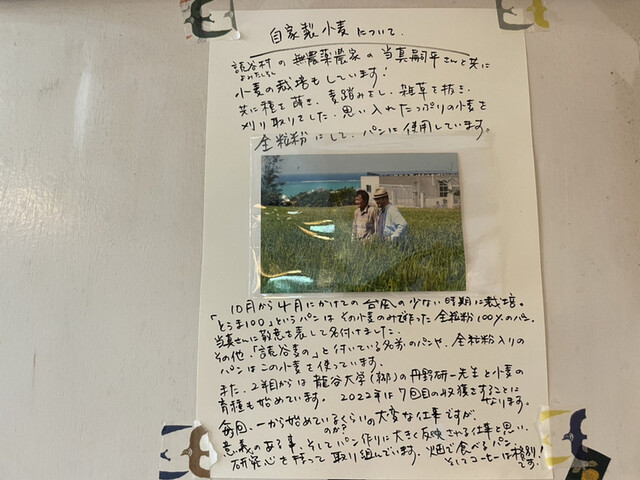 自家製小麦について.
読谷村の無農薬農家の当真嗣平さんと共に
よみたんそん
小麦の栽培もしています!
共に種を蒔き、麦踏みをし、雑草を抜き、
刈り取りをした、思い入れたっぷりの小麦を
全粒粉にして、パンに使用しています。
10月から4月にかけての台風の少ない時期に栽培。
「とうま100」というパンはその小麦のみで作った全粒粉100%のパン。
当真さんに敬意を表して名付けました。
その他、「読谷産の」と付いている名前のパンや、全粒粉入りの
パンはこの小麦を使っています。
また、2年目からは龍谷大学の丹野研一先生と小麦の
育種も始めています。2022年は7回目の収穫をすることに
なります。
毎回、一から始めているくらいの大変な仕事ですが、
のか?
意義のある事、そしてパン作りに大きく反映される仕事と思い、
研究心を持って取り組んでいます。畑で食べるパン、
そしてコーヒーは格別!
です!